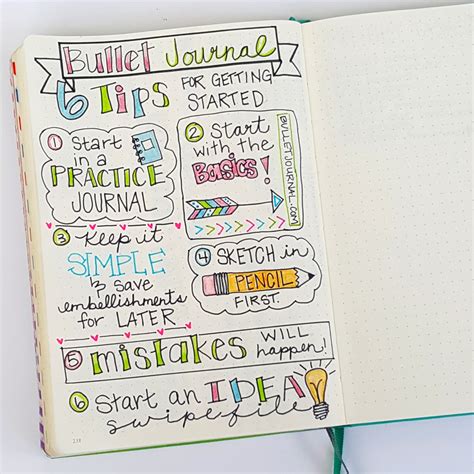 Bullet Journal
6 Tips FOR GETTING STARTED
1 Start
in a
PRACTICE
JOURNAL
2 Start
with the
Basics!
BULLETJOURNAL.COM
3 Keep it
SIMPLE
& save
embellishments
for LATER
4 SKETCH in
PENCIL
FIRST.
5 mistakes WILL happen!
6 Start an IDEA
swipefile
238